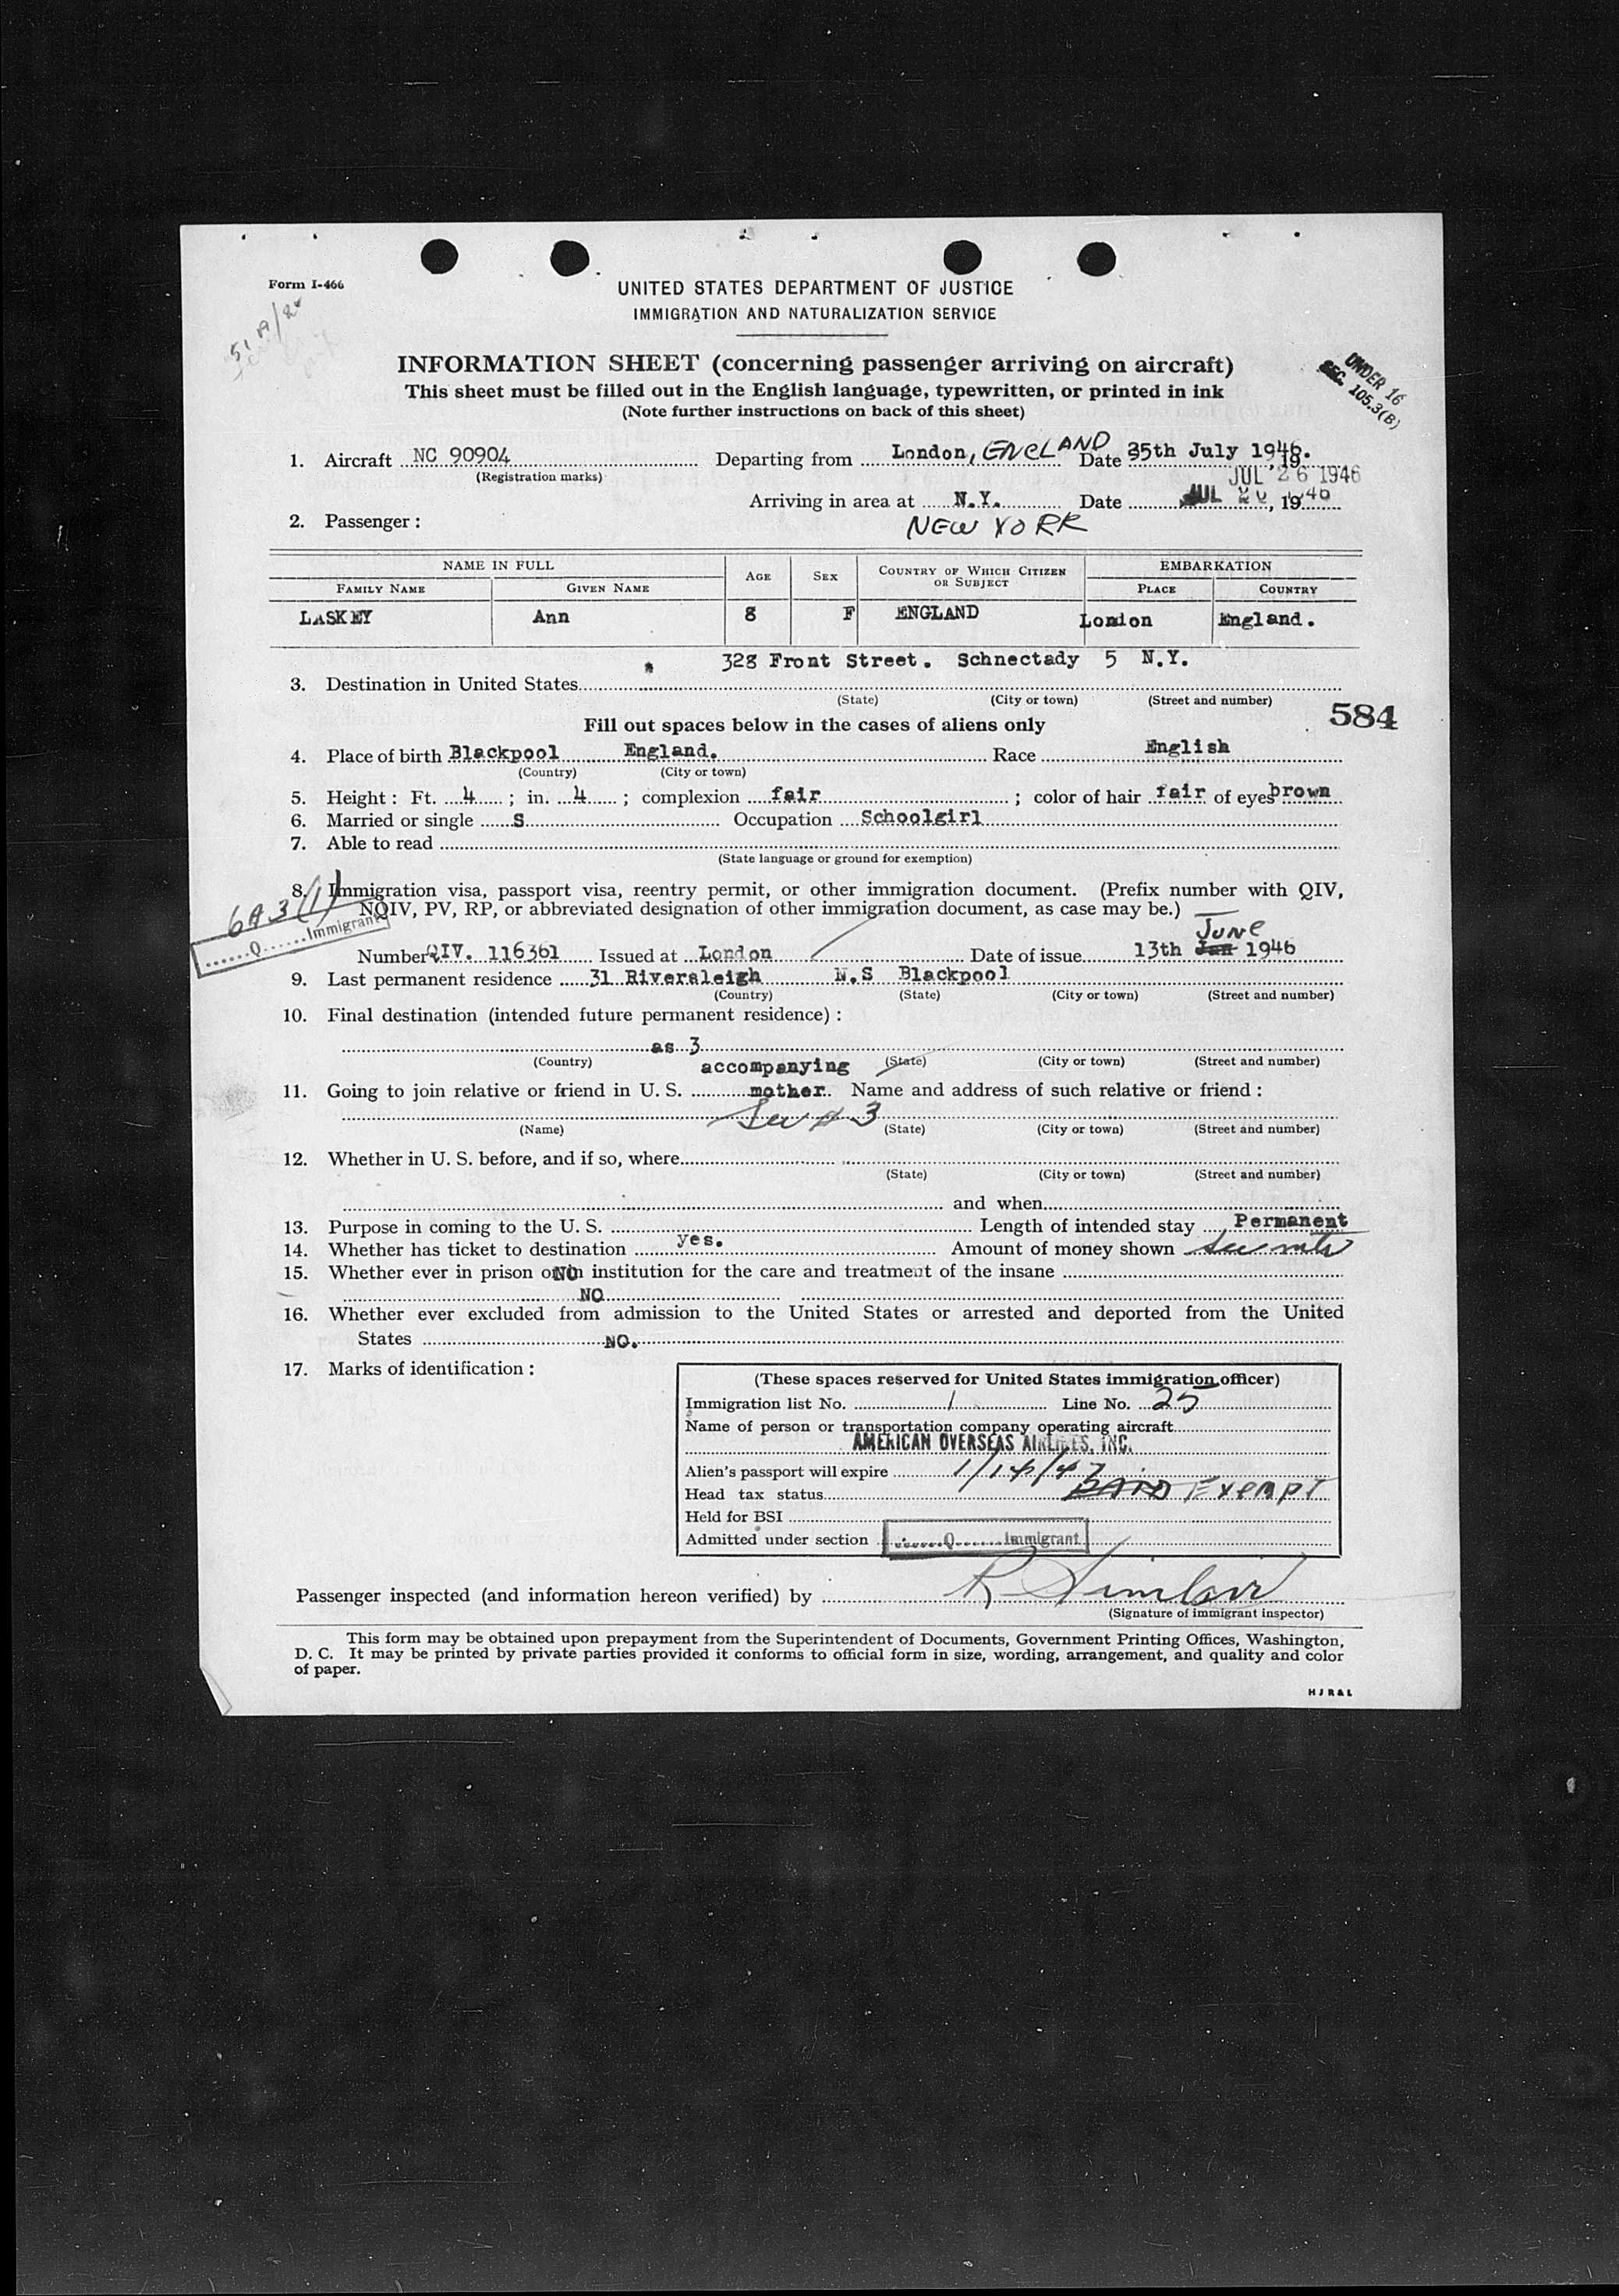 Form I-466
UNITED STATES DEPARTMENT OF JUSTICE
IMMIGRATION AND NATURALIZATION SERVICE
INFORMATION SHEET (concerning passenger arriving on aircraft)
This sheet must be filled out in the English language, typewritten, or printed in ink
(Note further instructions on back of this sheet)
UNDER 16
SEC. 105.3(B)
1. Aircraft NC 90904 Departing from London, ENGLAND Date 25th July 1946.
(Registration marks)
JUL 26 1946
Arriving in area at N.Y. Date JUL 26 1946, 19
2. Passenger :
NEW YORK
NAME IN FULL AGE SEX COUNTRY OF WHICH CITIZEN OR SUBJECT EMBARKATION
FAMILY NAME GIVEN NAME PLACE COUNTRY
LASKEY Ann 8 F ENGLAND London England.
328 Front Street. Schnectady 5 N.Y.
3. Destination in United States
(State) (City or town) (Street and number)
Fill out spaces below in the cases of aliens only
584
4. Place of birth Blackpool England. Race English
(Country) (City or town)
5. Height : Ft. 4 ; in. 4 ; complexion fair ; color of hair fair of eyes brown
6. Married or single S Occupation Schoolgirl
7. Able to read
(State language or ground for exemption)
8. Immigration visa, passport visa, reentry permit, or other immigration document. (Prefix number with QIV,
NQIV, PV, RP, or abbreviated designation of other immigration document, as case may be.)
6A3(1)
Q Immigrant
June
Number QIV. 116361 Issued at London Date of issue 13th Jan 1946
9. Last permanent residence 31 Riversleigh N.S Blackpool
(Country) (State) (City or town) (Street and number)
10. Final destination (intended future permanent residence) :
as 3
(Country) (State) (City or town) (Street and number)
accompanying
11. Going to join relative or friend in U. S. mother. Name and address of such relative or friend :
See # 3
(Name) (State) (City or town) (Street and number)
12. Whether in U. S. before, and if so, where
(State) (City or town) (Street and number)
and when
13. Purpose in coming to the U. S. Length of intended stay Permanent
14. Whether has ticket to destination yes. Amount of money shown See mtr
15. Whether ever in prison or in institution for the care and treatment of the insane NO
NO
16. Whether ever excluded from admission to the United States or arrested and deported from the United
States NO.
17. Marks of identification :
(These spaces reserved for United States immigration officer)
Immigration list No. 1 Line No. 25
Name of person or transportation company operating aircraft
AMERICAN OVERSEAS AIRLINES, INC.
Alien's passport will expire 1/14/47
Head tax status PAID Exempt
Held for BSI
Admitted under section Q Immigrant
Passenger inspected (and information hereon verified) by
(Signature of immigrant inspector)
This form may be obtained upon prepayment from the Superintendent of Documents, Government Printing Offices, Washington,
D. C. It may be printed by private parties provided it conforms to official form in size, wording, arrangement, and quality and color
of paper.
H J R & L